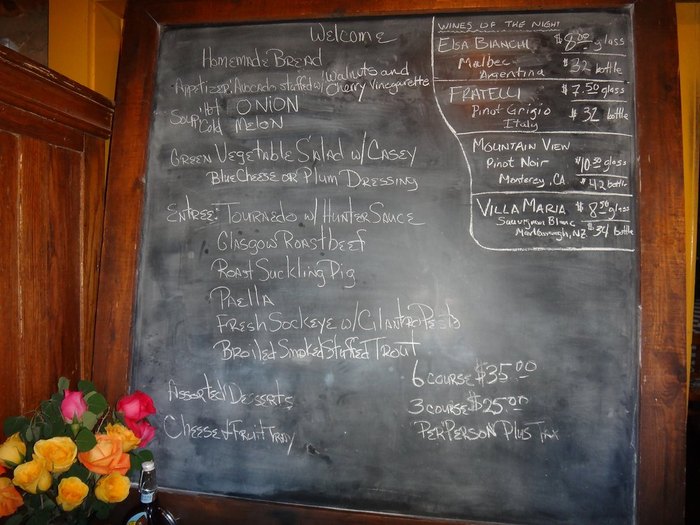 Welcome
Homemade Bread
Appetizer: Avocado stuffed w/ Walnuts and
Cherry Vinegarette
Soup Hot ONION
Cold MELON
Green Vegetable Salad w/ Casey
Blue Cheese or Plum Dressing
Entree: Tournedo w/ Hunter Sauce
Glasgow Roast beef
Roast Suckling Pig
Paella
Fresh Sockeye w/ Cilantro Pesto
Broiled Smoked Stuffed Trout
Assorted Desserts
Cheese & Fruit Tray
6 course $35.00
3 course $25.00
Per Person Plus Tax
WINES OF THE NIGHT
Elsa Bianchi $8.00 glass
Malbec $32 bottle
Argentina
FRATELLI $7.50 glass
Pinot Grigio $32 bottle
Italy
MOUNTAIN VIEW
Pinot Noir $10.50 glass
Monterey, CA $42 bottle
VILLA MARIA $8.50 glass
Sauvignon Blanc $34 bottle
Marlborough, NZ